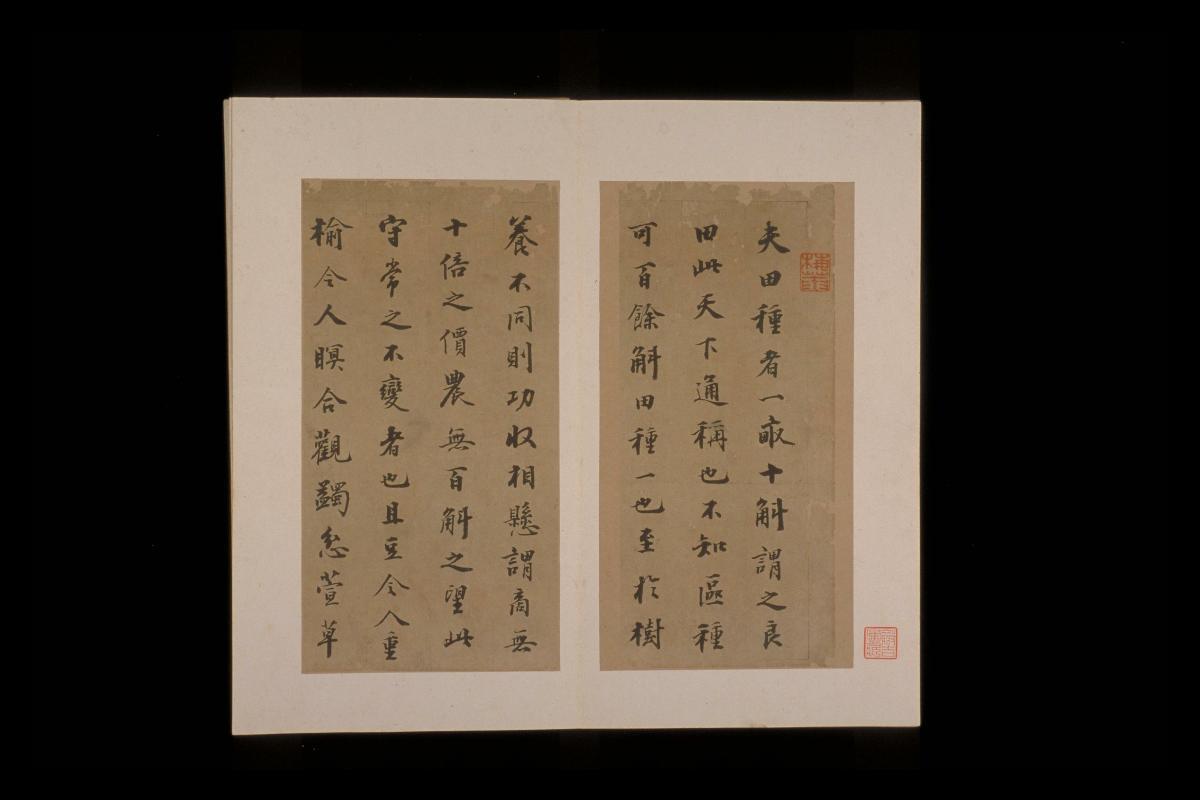 夫田種者一畝十斛謂之良
田此天下通稱也不知區種
可百餘斛田種一也至於樹
養不同則功收相懸謂商無
十倍之價農無百斛之望此
守常之不變者也且豆令人重
榆令人瞑合觀蠲忿萱草